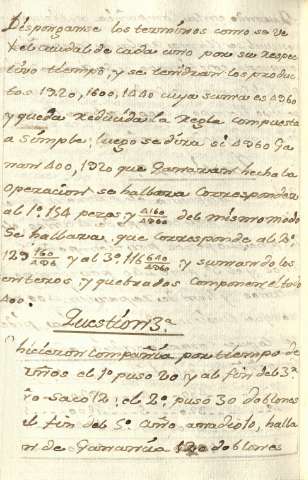 Disponganse los terminos como se ve
el caudal de cada uno por su respec
tivo tiempo, y se tendran los produc
tos 1920, 1600, 1440 cuya suma es 4960
y queda reducida la regla compuesta
a simple; luego se dira si 4960 ga
nan 400, 1920 que ganaran hecha la
operacion se hallara corresponder
al 1º. 154 pezas y 4160/4960 del mismo modo
se hallara que corresponde al 2º.
129 160/4960 y al 3º. 116 640/4960 y sumando los
enteros, y quebrados componen el todo
400.
Question 3.ª
hicieron compañia por tiempo de
años el 1º puso 20 y al fin del 3.º
ño saco 12; el 2º. puso 30 doblones
el fin del 5º. año añadio, halla
n de ganancia doblones